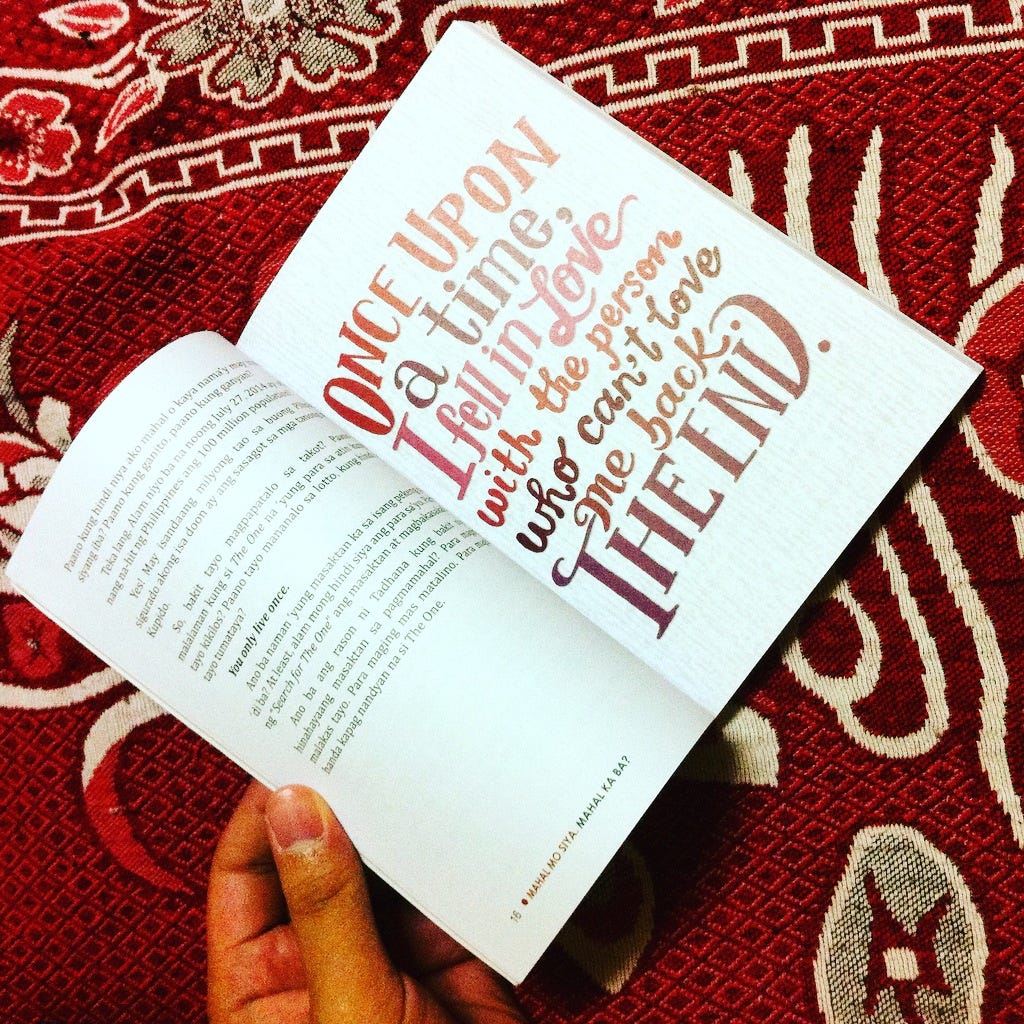 Paano kung hindi niya ako mahal o kaya nama'y may
siyang iba? Paano kung ganito, paano kung ganyan?
Teka lang. Alam niyo ba na noong July 27, 2014 ay
nang na-hit ng Philippines ang 100 million
Yes! May isandaang milyong tao sa buong
sigurado akong isa doon ay ang sasagot sa mga
Kupido.
So, bakit tayo magpapatalo sa takot?
malalaman kung si The One na 'yung para sa atin kung
tayo kikilos? Paano tayo mananalo sa lotto kung hindi
tayo tumataya?
You only live once.
Ano ba naman 'yung masaktan ka sa isang
'di ba? At least, alam mong hindi siya ang para sa 'yo.
ng "Search for The One" ang masaktan at
Ano ba ang rason ni Tadhana kung bakit
hinahayaang masaktan sa pagmamahal? Para
malakas tayo. Para maging mas matalino. Para
handa kapag nandyan na si The One.
16 • MAHAL MO SIYA. MAHAL KA BA?
ONCE UPON
a time,
I fell in Love
with the person
who can't love
me back.
THE END.